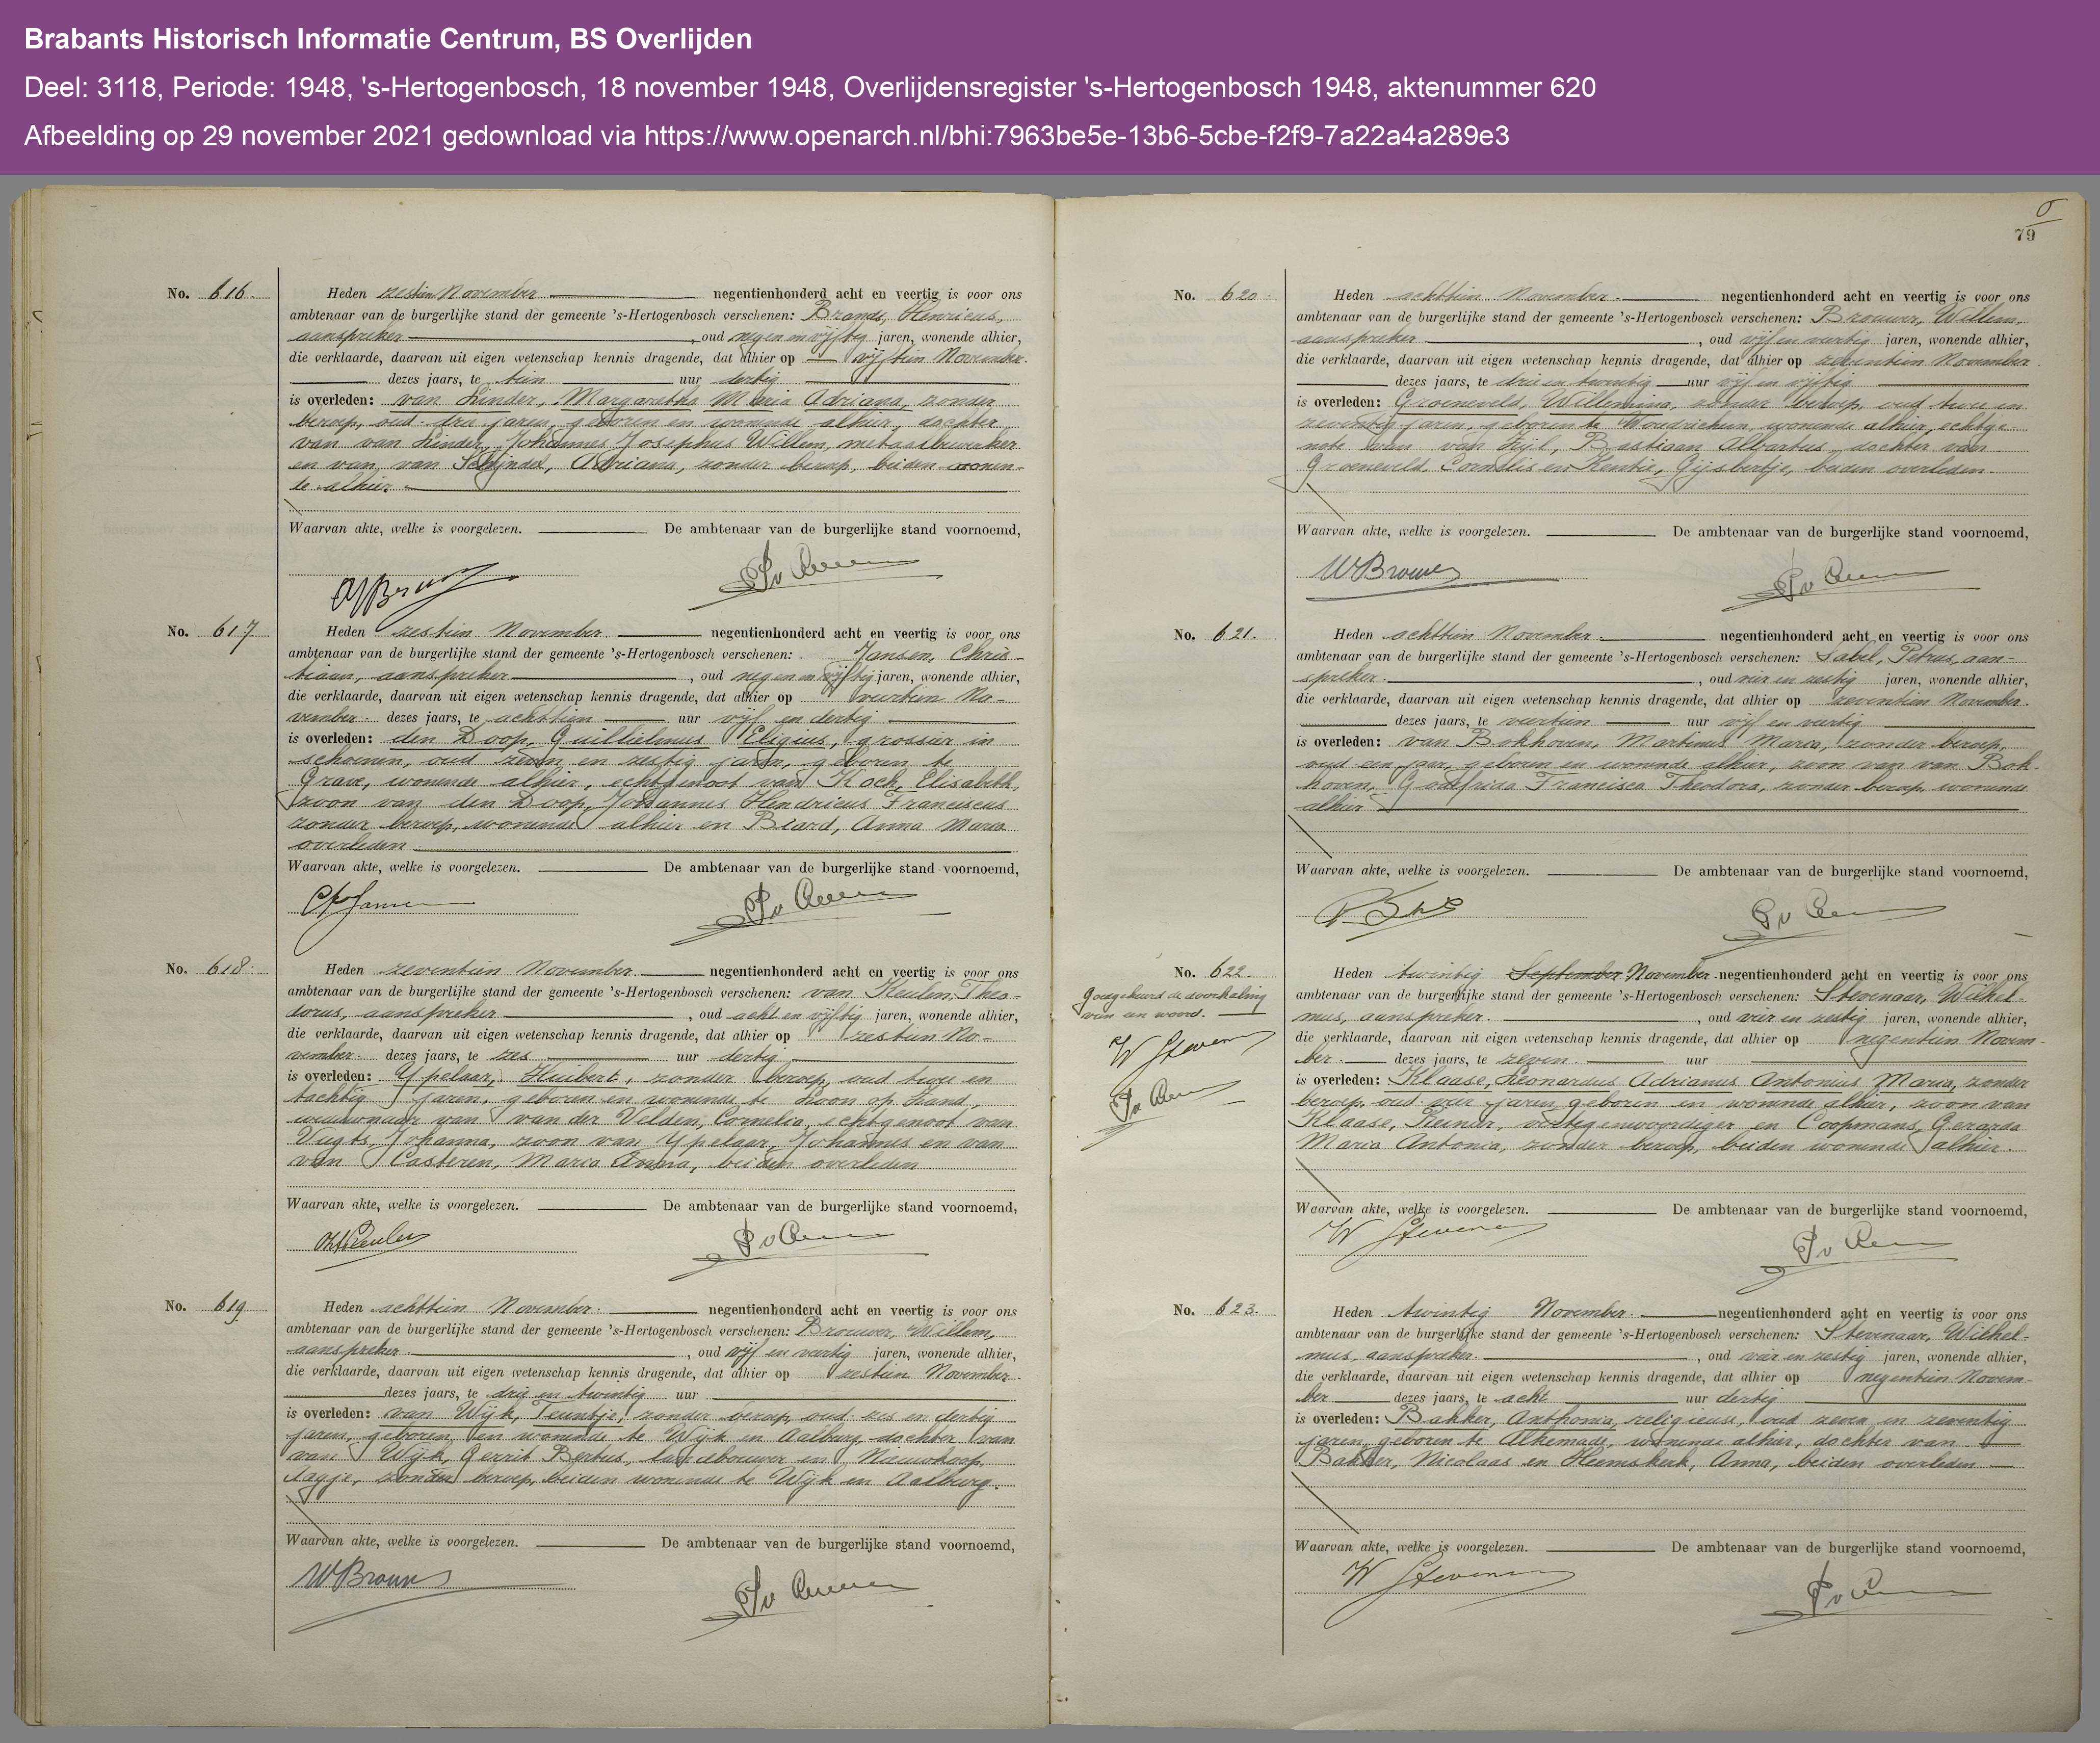 Brabants Historisch Informatie Centrum, BS Overlijden
Deel: 3118, Periode: 1948, 's-Hertogenbosch, 18 november 1948, Overlijdensregister 's-Hertogenbosch 1948, aktenummer 620
Afbeelding op 29 november 2021 gedownload via https://www.openarch.nl/bhi:7963be5e-13b6-5cbe-f2f9-7a22a4a289e3
No. 616.
Heden zestien November negentienhonderd acht en veertig is voor ons
ambtenaar van de burgerlijke stand der gemeente 's-Hertogenbosch verschenen: Brands, Henricus,
aanspreker, oud negen en vijftig jaren, wonende alhier,
die verklaarde, daarvan uit eigen wetenschap kennis dragende, dat alhier op vijftien November
dezes jaars, te tien uur dertig
is overleden: van Linder, Margaretha Maria Adriana, zonder
beroep, oud drie jaren, geboren en wonende alhier, dochter
van van Linder, Johannes Josephus Willem, metaalbewerker
en van van Schijndel, Adriana, zonder beroep, beiden wonen-
de alhier.
Waarvan akte, welke is voorgelezen. De ambtenaar van de burgerlijke stand voornoemd,
No. 617
Heden zestien November negentienhonderd acht en veertig is voor ons
ambtenaar van de burgerlijke stand der gemeente 's-Hertogenbosch verschenen: Jansen, Chris-
tiaan, aanspreker, oud negen en vijftig jaren, wonende alhier,
die verklaarde, daarvan uit eigen wetenschap kennis dragende, dat alhier op veertien No-
vember dezes jaars, te achttien uur vijf en dertig
is overleden: den Doop, Guillielmus Eligius, grossier in
schoenen, oud zeven en zestig jaren, geboren te
Grave, wonende alhier, echtgenoot van Koch, Elisabeth,
zoon van den Doop, Johannes Hendricus Franciscus
zonder beroep, wonende alhier en Biard, Anna Maria
overleden
Waarvan akte, welke is voorgelezen. De ambtenaar van de burgerlijke stand voornoemd,
Chr Jansen
No. 618.
Heden zeventien November negentienhonderd acht en veertig is voor ons
ambtenaar van de burgerlijke stand der gemeente 's-Hertogenbosch verschenen: van Keulen, Theo-
dorus, aanspreker, oud acht en vijftig jaren, wonende alhier,
die verklaarde, daarvan uit eigen wetenschap kennis dragende, dat alhier op zestien No-
vember dezes jaars, te zes uur dertig
is overleden: Ypelaar, Huibert, zonder beroep, oud twee en
tachtig jaren, geboren en wonende te Loon op Zand,
weduwnaar van van der Velden, Cornelia, echtgenoot van
Vugts, Johanna, zoon van Ypelaar, Johannes en van
van Casteren, Maria Anna, beiden overleden.
Waarvan akte, welke is voorgelezen. De ambtenaar van de burgerlijke stand voornoemd,
No. 619.
Heden achttien November. negentienhonderd acht en veertig is voor ons
ambtenaar van de burgerlijke stand der gemeente 's-Hertogenbosch verschenen: Brouwer, Willem,
aanspreker, oud vijf en veertig jaren, wonende alhier,
die verklaarde, daarvan uit eigen wetenschap kennis dragende, dat alhier op zestien November
dezes jaars, te drie en twintig uur
is overleden: van Wijk, Teuntje, zonder beroep, oud zes en dertig
jaren, geboren en wonende te Wijk en Aalburg, dochter van
van Wijk, Gerrit Bertus, landbouwer en Nieuwkoop,
Aagje, zonder beroep, beiden wonende te Wijk en Aalburg.
Waarvan akte, welke is voorgelezen. De ambtenaar van de burgerlijke stand voornoemd,
W Brouwer
79
No. 620.
Heden achttien November. negentienhonderd acht en veertig is voor ons
ambtenaar van de burgerlijke stand der gemeente 's-Hertogenbosch verschenen: Brouwer, Willem,
aanspreker, oud vijf en veertig jaren, wonende alhier,
die verklaarde, daarvan uit eigen wetenschap kennis dragende, dat alhier op zeventien November
dezes jaars, te drie en twintig uur vijf en vijftig
is overleden: Groeneveld, Willemina, zonder beroep, oud twee en
zeventig jaren, geboren te Woudrichem, wonende alhier, echtge-
note van van Zijl, Bastiaan Albartus, dochter van
Groeneveld, Cornelis en Kentie, Gijsbertje, beiden overleden.
Waarvan akte, welke is voorgelezen. De ambtenaar van de burgerlijke stand voornoemd,
W Brouwer
No. 621.
Heden achttien November. negentienhonderd acht en veertig is voor ons
ambtenaar van de burgerlijke stand der gemeente 's-Hertogenbosch verschenen: Sabel, Petrus, aan-
spreker, oud vier en zestig jaren, wonende alhier,
die verklaarde, daarvan uit eigen wetenschap kennis dragende, dat alhier op zeventien November.
dezes jaars, te veertien uur vijf en veertig
is overleden: van Bokhoven, Martinus Maria, zonder beroep,
oud een jaar, geboren en wonende alhier, zoon van van Bok-
hoven, Godefrida Francisca Theodora, zonder beroep, wonende
alhier
Waarvan akte, welke is voorgelezen. De ambtenaar van de burgerlijke stand voornoemd,
No. 622.
Goedgekeurd de doorhaling
van een woord.
W Stevenaar
Heden twintig September November negentienhonderd acht en veertig is voor ons
ambtenaar van de burgerlijke stand der gemeente 's-Hertogenbosch verschenen: Stevenaar, Wilhel-
mus, aanspreker, oud vier en zestig jaren, wonende alhier,
die verklaarde, daarvan uit eigen wetenschap kennis dragende, dat alhier op negentien Novem-
ber dezes jaars, te zeven uur
is overleden: Klaase, Leonardus Adrianus Antonius Maria, zonder
beroep, oud vier jaren, geboren en wonende alhier, zoon van
Klaase, Reinier, vertegenwoordiger en Coopmans, Gerarda
Maria Antonia, zonder beroep, beiden wonende alhier.
Waarvan akte, welke is voorgelezen. De ambtenaar van de burgerlijke stand voornoemd,
W Stevenaar
No. 623.
Heden twintig November. negentienhonderd acht en veertig is voor ons
ambtenaar van de burgerlijke stand der gemeente 's-Hertogenbosch verschenen: Stevenaar, Wilhel-
mus, aanspreker, oud vier en zestig jaren, wonende alhier,
die verklaarde, daarvan uit eigen wetenschap kennis dragende, dat alhier op negentien Novem-
ber dezes jaars, te acht uur dertig
is overleden: Bakker, Anthonia, religieuse, oud zeven en zeventig
jaren, geboren te Alkemade, wonende alhier, dochter van
Bakker, Nicolaas en Heemskerk, Anna, beiden overleden
Waarvan akte, welke is voorgelezen. De ambtenaar van de burgerlijke stand voornoemd,
W Stevenaar